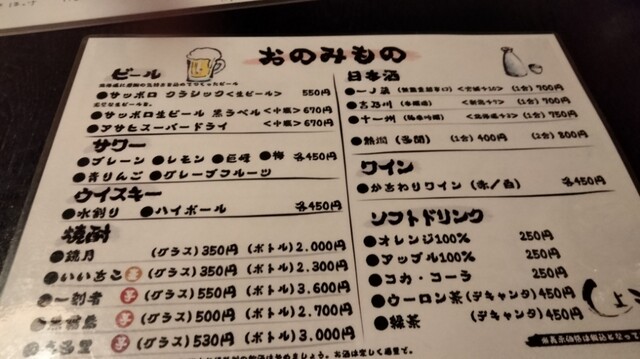 おのみもの
ビール
●サッポロ クラシック<生ビール> 550円
●サッポロ生ビール 黒ラベル <中瓶>670円
●アサヒスーパードライ <中瓶>670円
サワー
●プレーン ●レモン ●巨峰 ●梅 各450円
●青りんご ●グレープフルーツ
ウイスキー
●水割り ●ハイボール 各450円
焼酎
●鏡月 (グラス)350円 (ボトル)2.000円
●いいちこ 麦 (グラス)350円 (ボトル)2.300円
●一刻者 芋 (グラス)550円 (ボトル)3.600円
芋 (グラス)500円 (ボトル)2.700円
芋 (グラス)530円 (ボトル)3.000円
日本酒
(1合)700円
●吉乃川 (1合)700円
●十一州 (1合)750円
●熱燗 (1合)400円 (2合)800円
ワイン
●かちわりワイン (赤/白) 各450円
ソフトドリンク
●オレンジ100% 250円
●アップル100% 250円
●コカ・コーラ 250円
●ウーロン茶(デキャンタ)450円
●緑茶 (デキャンタ)450円